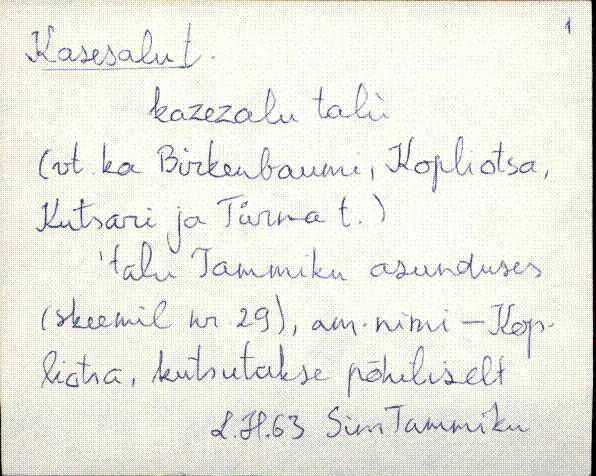 1
Kasesalu t.
kazezalu talù
(vt. ka Birkenbaumi, Kopliotsa,
Kutsari ja Türna t.)
'talu Tammiku asunduses
(skeemil nr 29), am. nimi - Kop-
liotsa, kutsutakse põhiliselt
L.H.63 Sim Tammiku